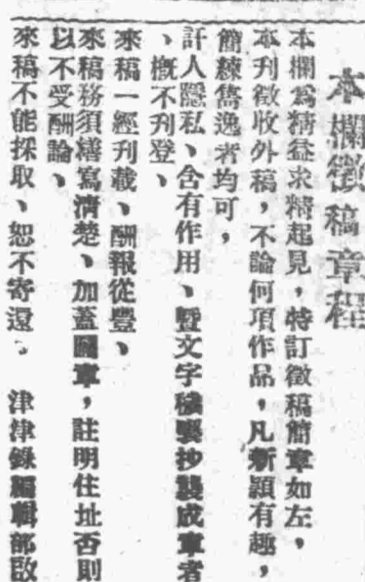 本欄徵稿章程
本欄爲精益求精起見，特訂徵稿簡章如左，
本刊徵收外稿，不論何項作品，凡新穎有趣，
簡練雋逸者均可，
訐人隱私、含有作用、暨文字穢褻抄襲成章者
、槪不刋登、
來稿一經刊載、酬報從豐、
來稿務須繕寫清楚、加蓋圖章，註明住址否則
以不受酬論、
來稿不能採取、恕不寄還、　津津錄編輯部啟